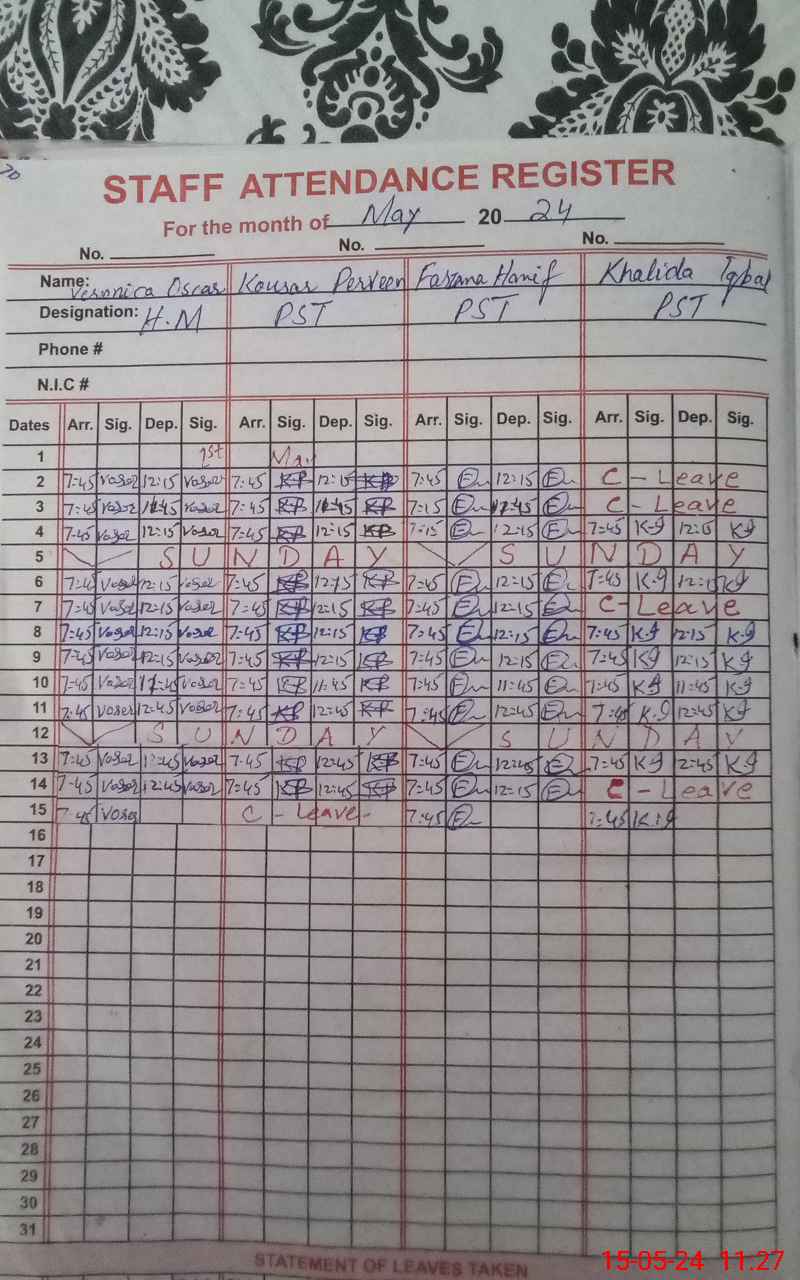 70
STAFF ATTENDANCE REGISTER
For the month of May 2024
No. No. No.
Name: Veronica Oscar Kousar Perveen Farzana Hanif Khalida Iqbal
Designation: H.M PST PST PST
Phone #
N.I.C #
Dates Arr. Sig. Dep. Sig. Arr. Sig. Dep. Sig. Arr. Sig. Dep. Sig. Arr. Sig. Dep. Sig.
1 1st May
2 7:45 Voser 12:15 Voser 7:45 KP 12:15 KP 7:45 12:15 C - Leave
3 7:45 Voser 11:45 Voser 7:45 KP 11:45 KP 7:15 C - Leave
4 7:45 Voser 12:15 Voser 7:45 KP 12:15 KP 7:15 12:45 7:45 K.9 12:15 K9
5 S U N D A Y S U N D A Y
6 7:45 Voser 12:15 Voser 7:45 KP 12:15 KP 7:45 12:15 7:45 K.9 12:15 K9
7 7:45 Voser 12:15 Voser 7:45 KP 12:15 KP 7:45 12:15 C - Leave
8 7:45 Voser 12:15 Voser 7:45 KP 12:15 KP 7:45 12:15 7:45 K9 12:15 K9
9 7:45 Voser 12:15 Voser 7:45 KP 12:15 KP 7:45 12:15 7:45 K9 12:15 K9
10 7:45 Voser 11:45 Voser 7:45 KP 11:45 KP 7:45 11:45 7:45 K9 11:45 K9
11 7:45 Voser 12:45 Voser 7:45 KP 12:45 KP 7:45 12:45 7:45 K.9 12:45 K9
12 S U N D A Y S U N D A Y
13 7:45 Voser 12:45 Voser 7:45 KP 12:45 KP 7:45 12:45 7:45 K9 12:45 K9
14 7:45 Voser 12:45 Voser 7:45 KP 12:45 KP 7:45 12:15 C - Leave
15 7:45 Voser C - Leave - 7:45 7:45 K.9
16
17
18
19
20
21
22
23
24
25
26
27
28
29
30
31
STATEMENT OF LEAVES TAKEN
15-05-24 11.27